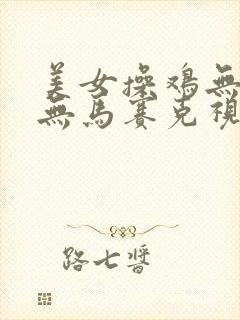 美女操鸡無
無馬賽克視
路七醬